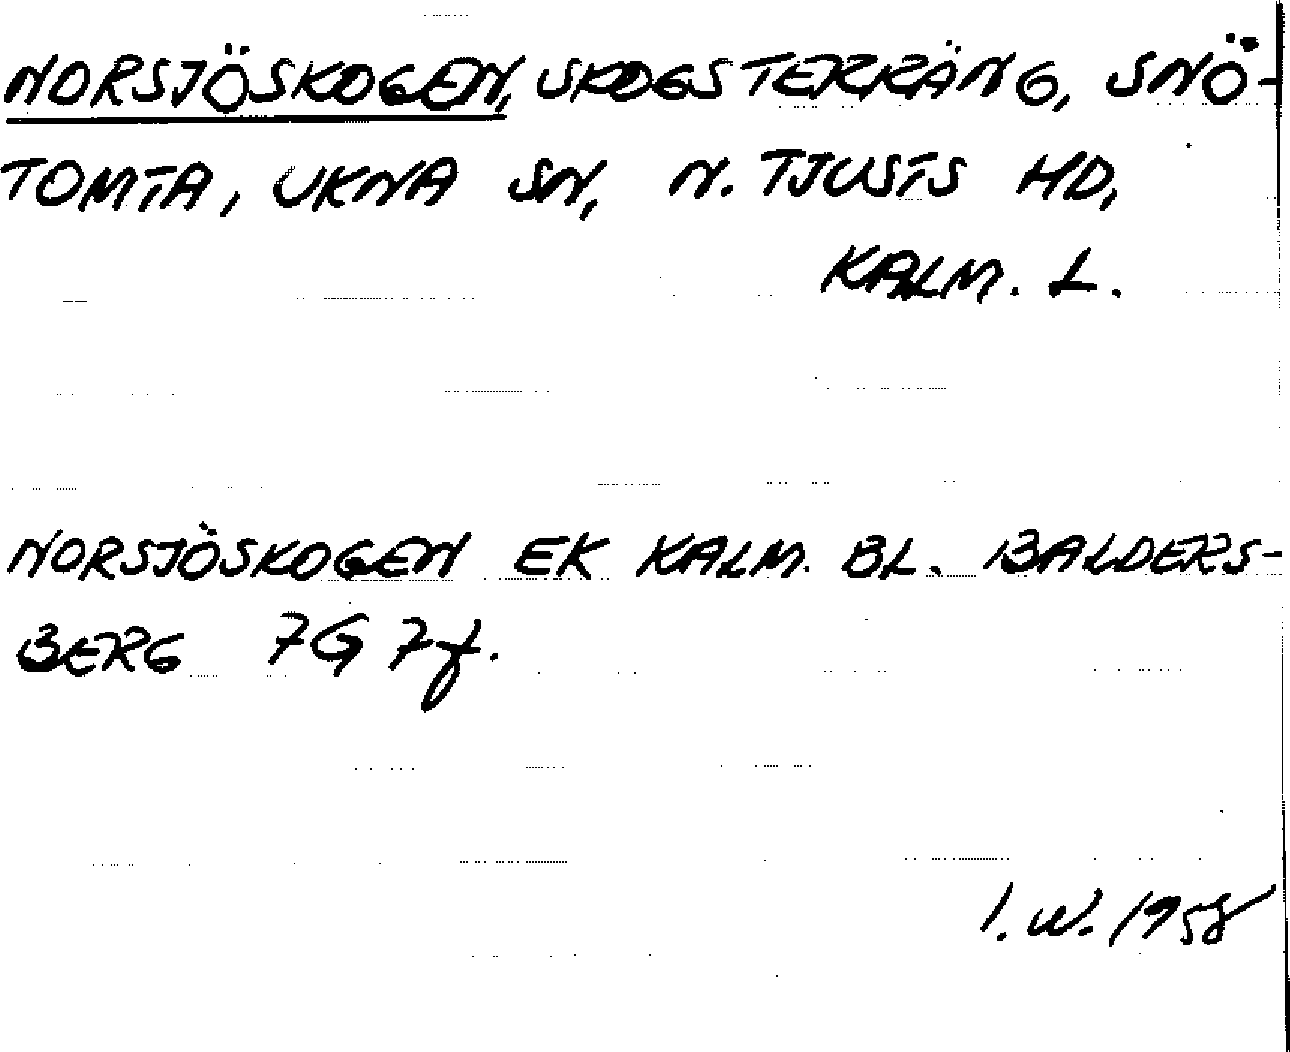 NORSJÖSKOGEN, SKOGSTERRÄNG, SNÖ-
TOMTA, UKNA SN, N. TJUSTS HD,
KALM. L.
NORSJÖSKOGEN EK KALM. BL. BALDERS-
BERG 7G 7f.
I. W. 1958